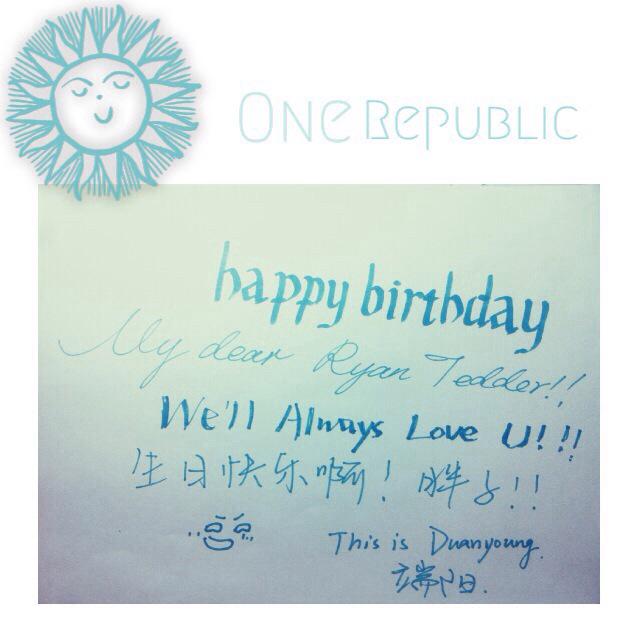 ONE REPUBLIC
happy birthday
My dear Ryan Tedder!!
We'll Always Love U!!!
生日快乐啊! 胖子!!
This is Duanyoung.
端阳.